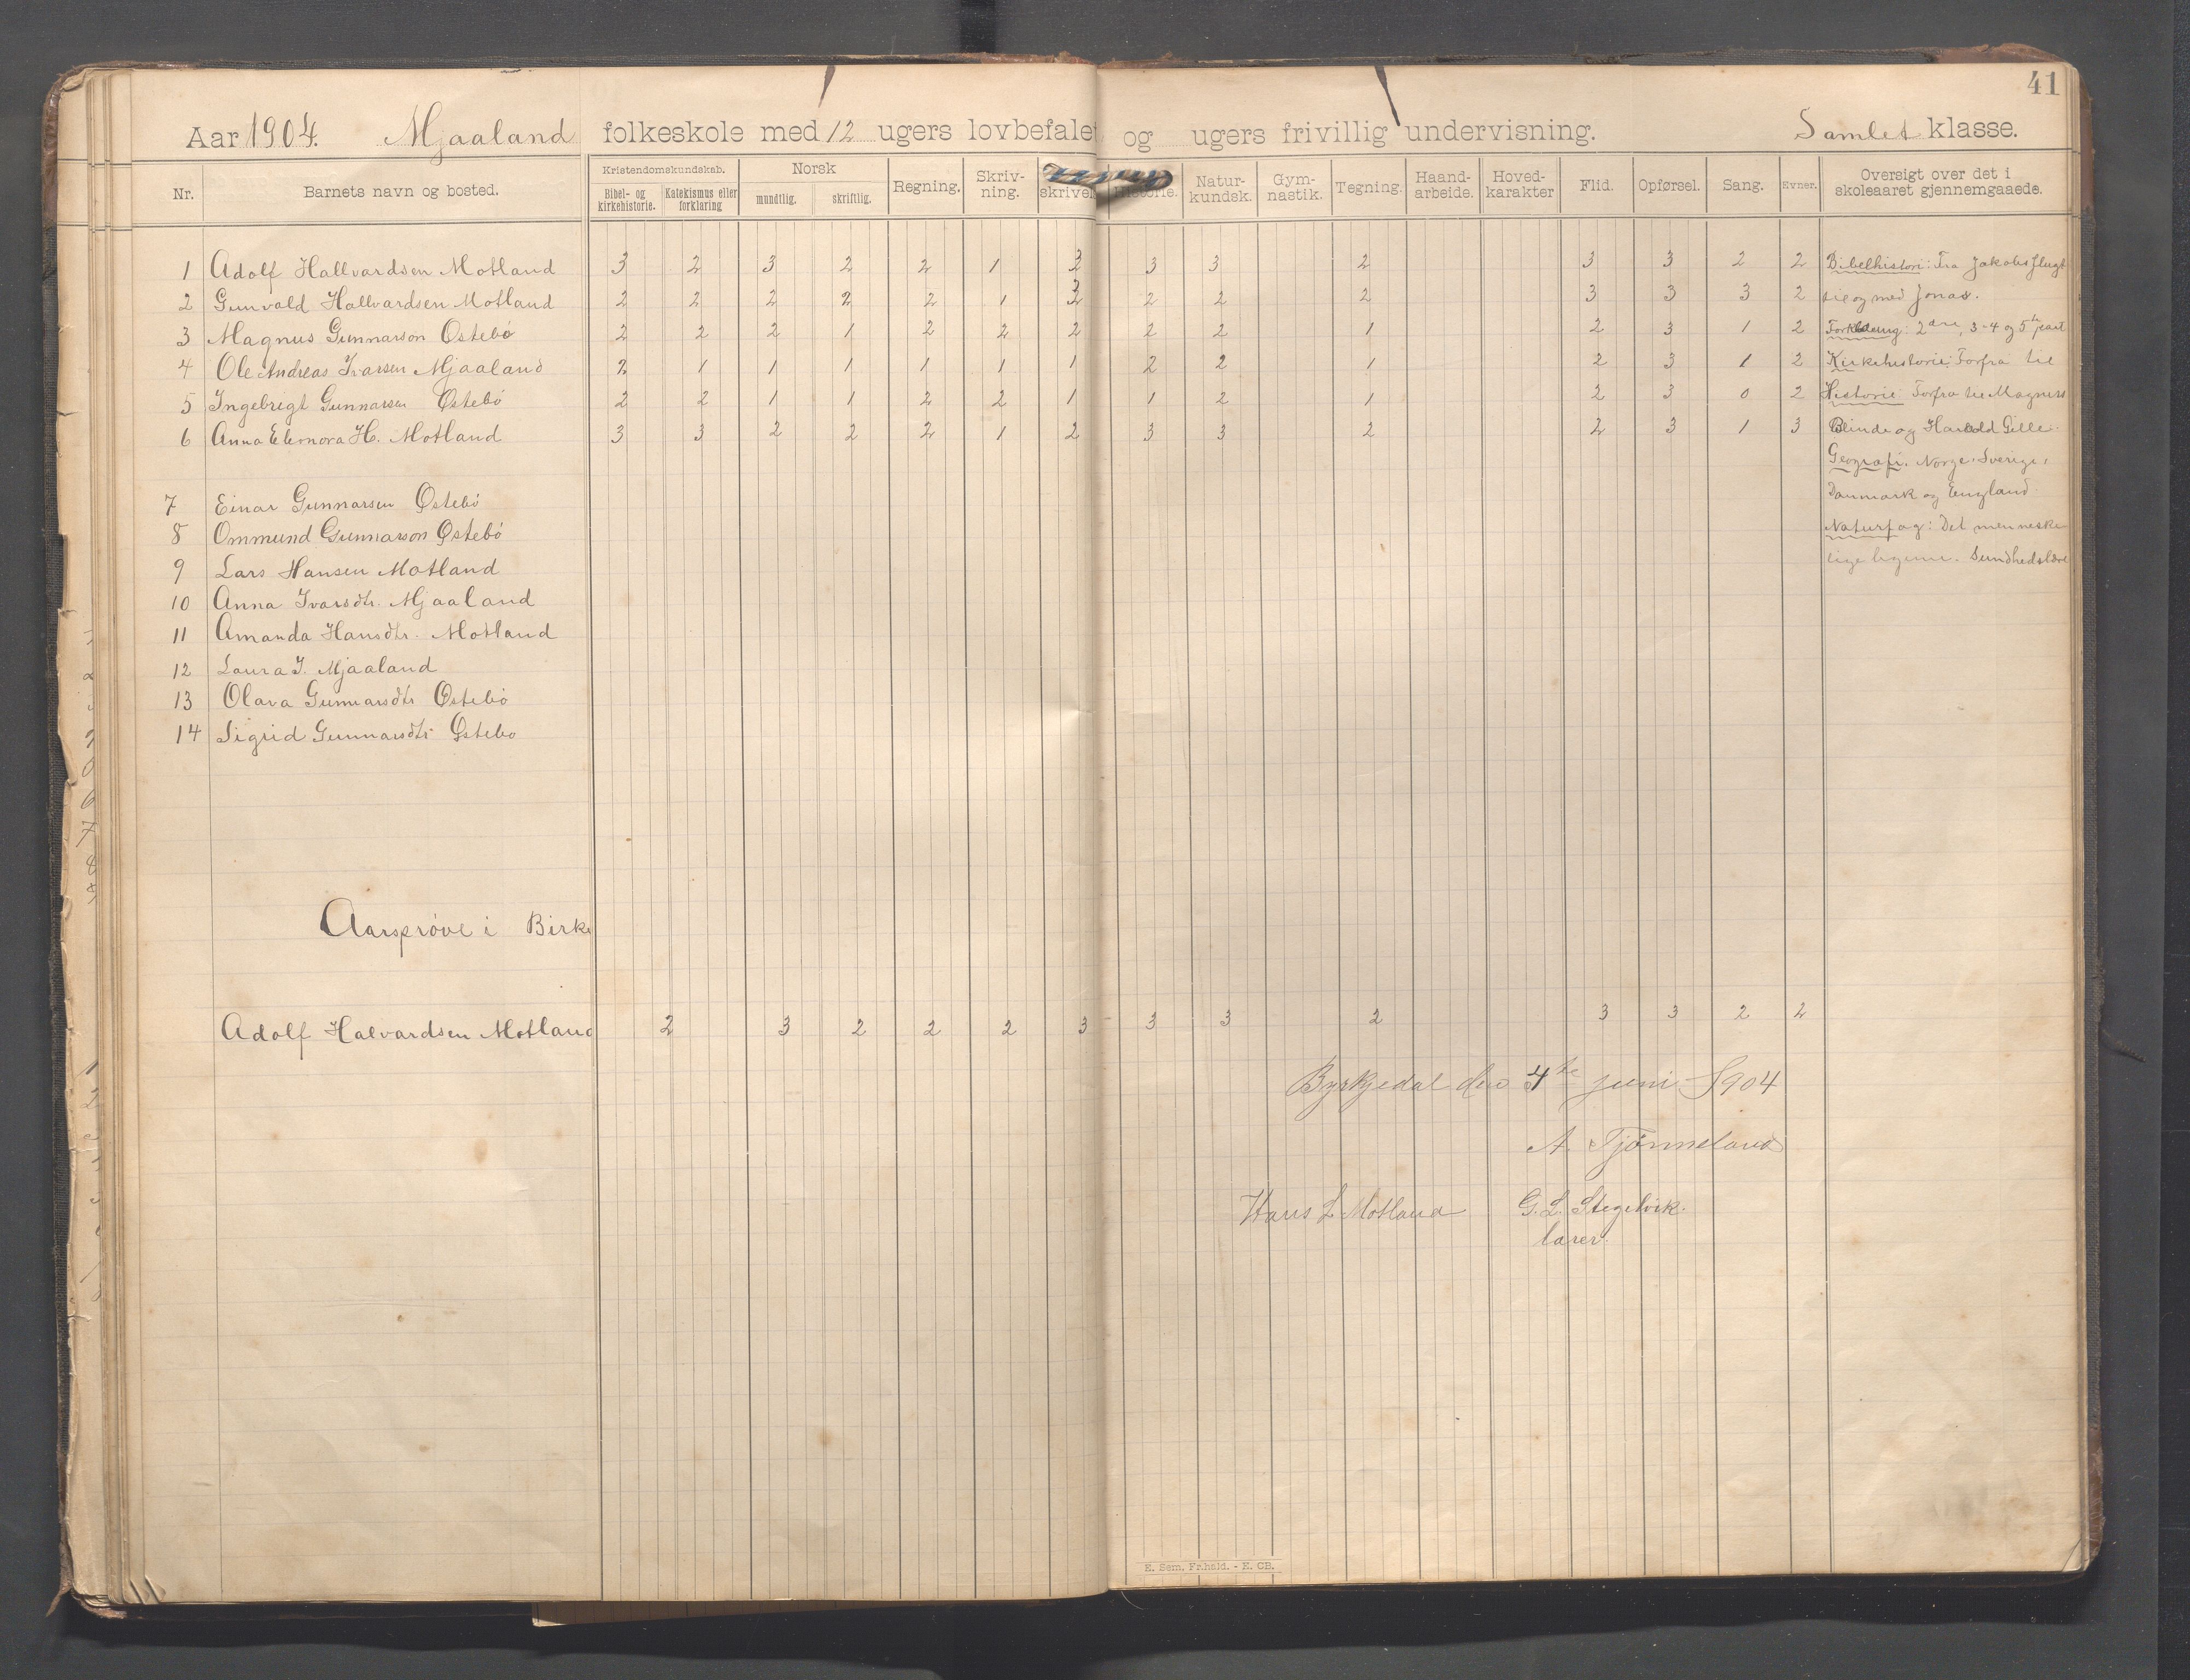 41
Aar 1904. Mjaaland folkeskole med 12 ugers lovbefalet og ugers frivillig undervisning. Samlet klasse.
Nr. Barnets navn og bosted. Kristendomskundskab. Bibel- og kirkehistorie. Katekismus eller forklaring Norsk mundtlig. skriftlig. Regning. Skriv-ning. skrivel Historie. Natur-kundsk. Gym-nastik. Tegning. Haand-arbeide. Hoved-karakter Flid. Opførsel. Sang. Evner. Oversigt over det i skoleaaret gjennemgaaede.
1 Adolf Hallvardsen Motland 3 2 3 2 2 1 2 3 3 2 3 3 2 2 Bibelhistori: Fra Jakobs flugt
2 Gunvald Hallvardsen Motland 2 2 2 2 2 1 2 2 2 2 3 3 3 2 til og med Jonas.
3 Magnus Gunnarson Østebø 2 2 2 1 2 2 2 2 2 1 2 3 1 2 2dre, 3-4 og 5te part
4 Ole Andreas Ivarsen Mjaaland 2 1 1 1 1 1 1 2 2 1 2 3 1 2 Kirkehistorie: Forfra til
5 Ingebrigt Gunnarsen Østebø 2 2 1 1 2 2 1 1 2 1 2 3 0 2 Historie: Forfra til Magnus
6 Anna Elenora H. Motland 3 3 2 2 2 1 2 3 3 2 2 3 1 3 Blinde og Harald Gille.
Geografi. Norge, Sverige,
7 Einar Gunnarsen Østebø Danmark og England.
8 Ommund Gunnarson Østebö Naturfag: Det menneske
9 Lars Hansen Motland lige legeme. Sundhedslære
10 Anna Ivarsdtr. Mjaaland
11 Amanda Hansdtr. Motland
12 Laura I. Mjaaland
13 Olava Gunnarsdtr Østebö
14 Sigrid Gunnarsdtr Østebo
Aarsprøve i Birke
Adolf Halvardsen Motland 2 3 2 2 2 3 3 3 2 3 3 2 2
Byrkjedal den 4de juni 1904
A. Tjønneland
Hans L Motland G. L. Stegelvik.
lærer.
E. Sem, Fr.hald. - E. CB.